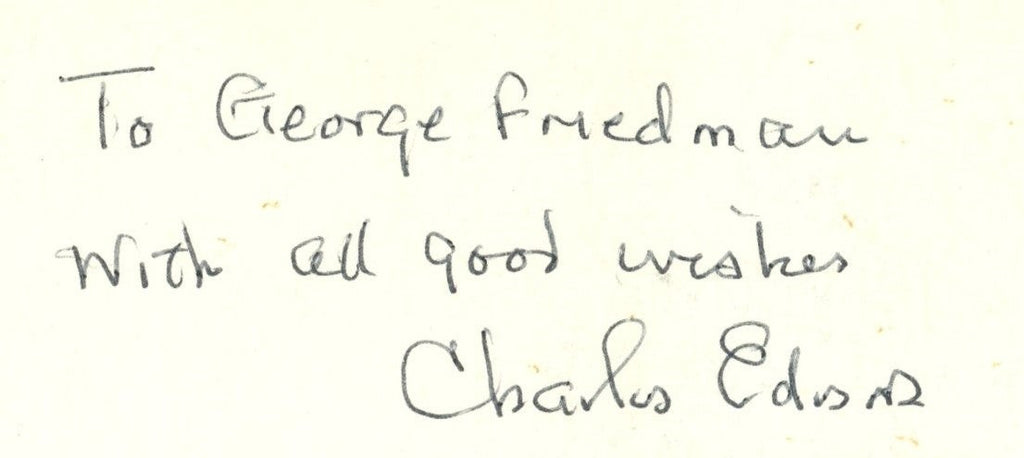 To George Friedman
With all good wishes
Charles Edison